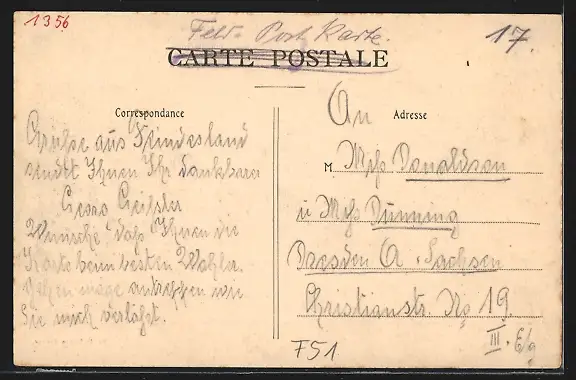 1356
Feld-Post Karte.
17.
CARTE POSTALE
Correspondance
Adresse
Grüße aus
sendet Ihnen Ihr dankbarer
Georg Geißler
Wünsche daß Ihnen die
Karte beim besten
mage antreffen wie
Sie mich verlaßt.
An
M Miss Donaldson
u Miss Dunning
Dresden A. Sachsen
Christianstr. No 19
III.
F51